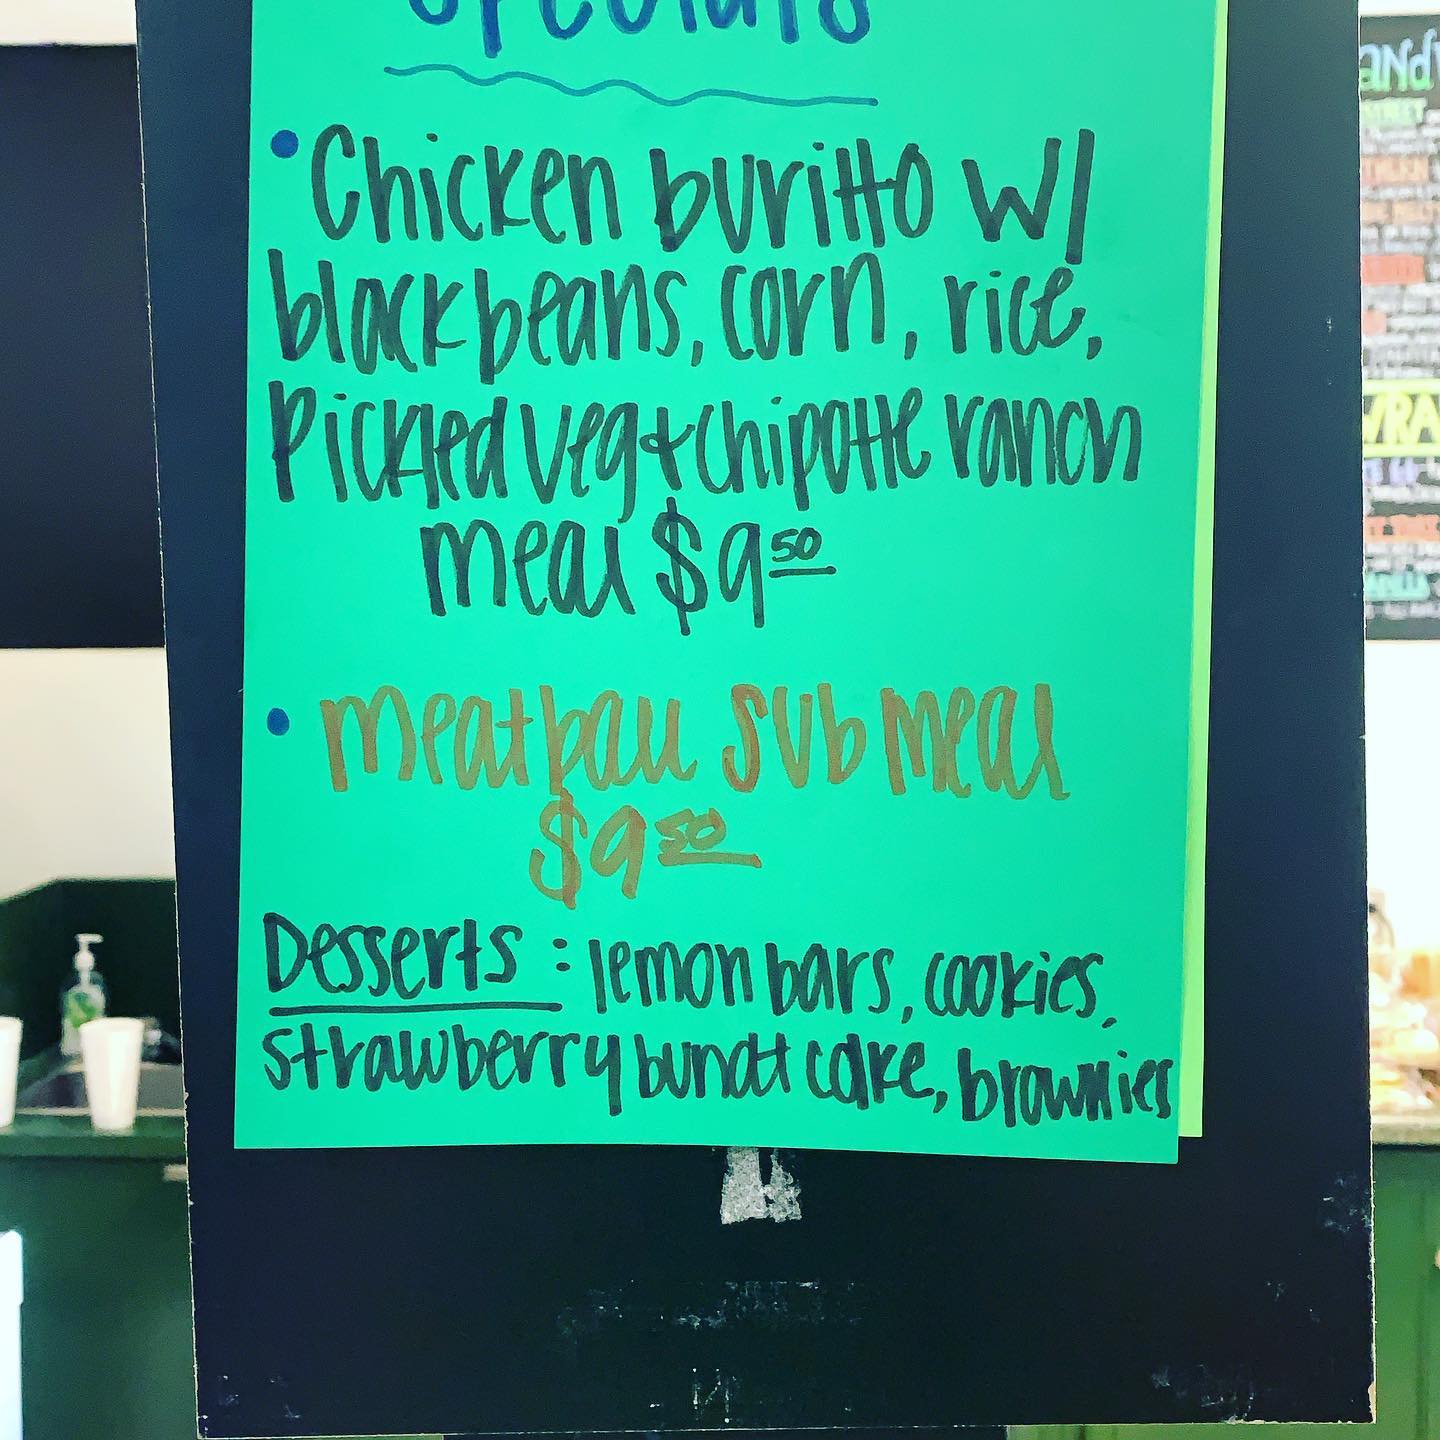 Specials
• Chicken buritto w/
black beans, corn, rice,
Pickled veg & chipotle ranch
meal $9.50
• Meatball sub meal
$9.50
Desserts: lemon bars, cookies,
strawberry bundt cake, brownies